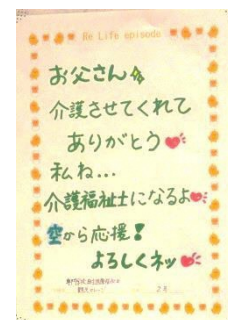 Re Life episode
お父さん
介護させてくれて
ありがとう
私ね…
介護福祉士になるよ
空から応援!
よろしくネッ